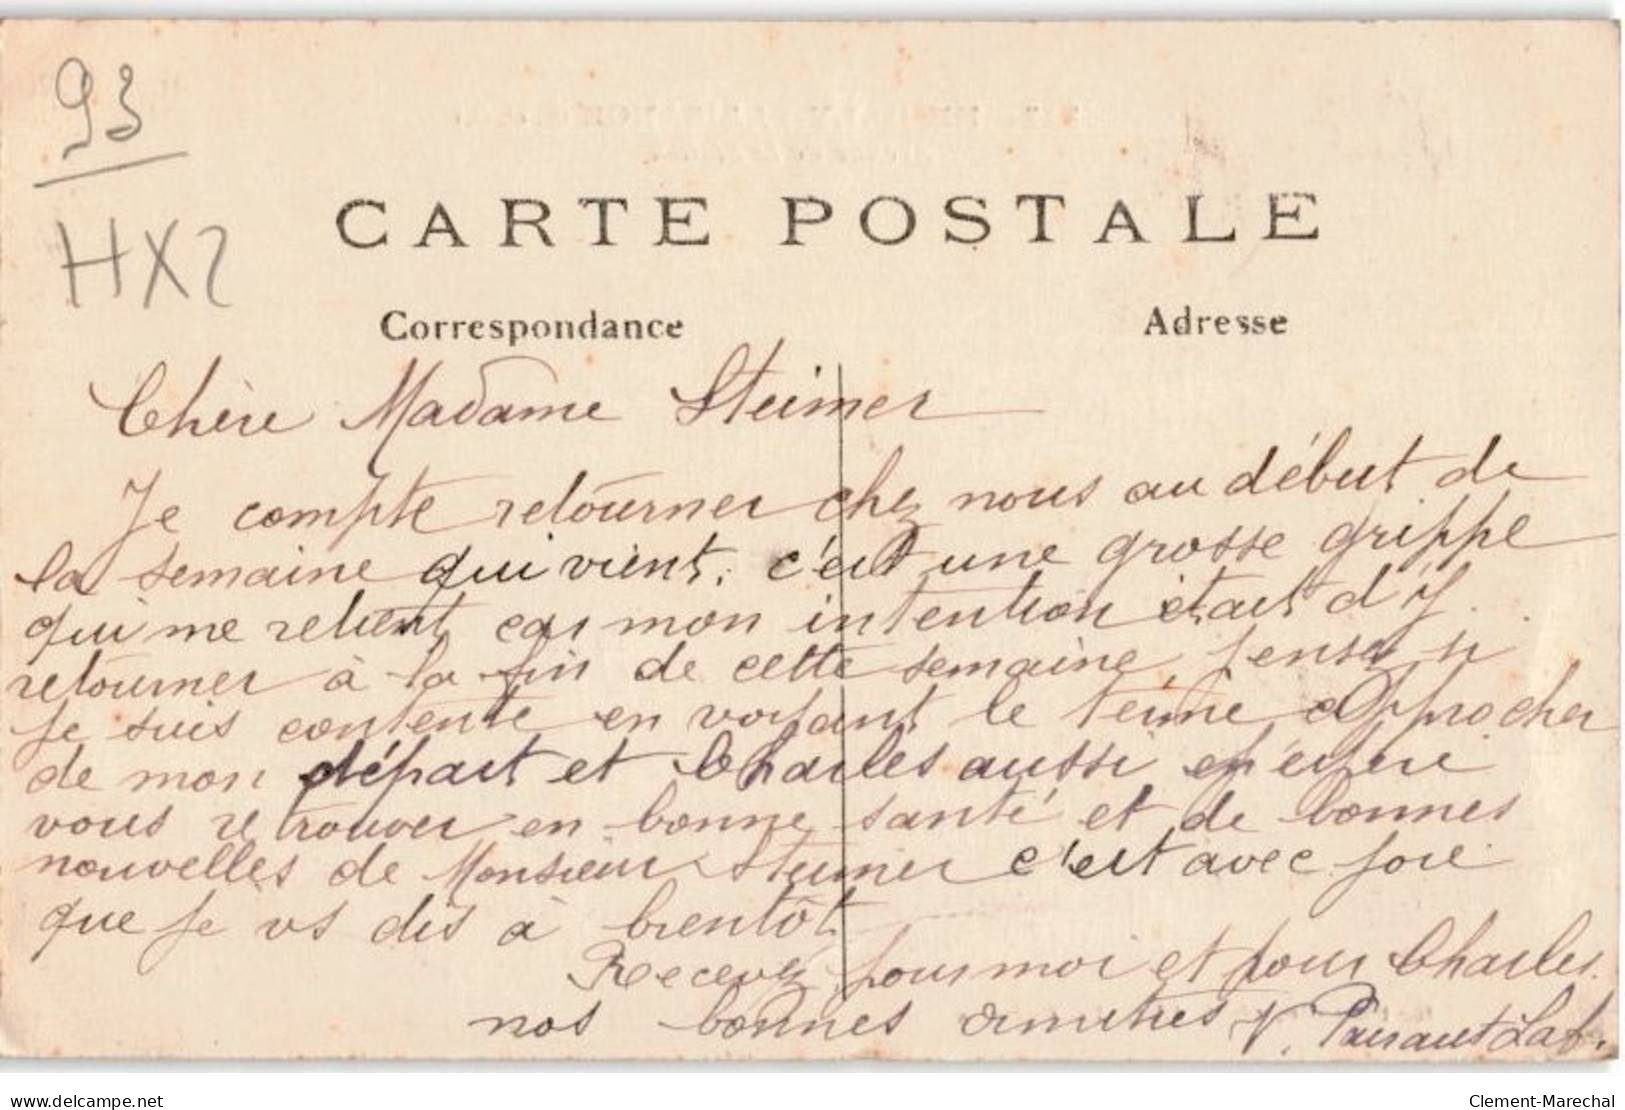 93
HX2
CARTE POSTALE
Correspondance
Adresse
Chère Madame Steimer
Je compte retourner chez nous au début de
la semaine qui vient, c'est une grosse grippe
qui me retient car mon intention était d'y
retourner à la fin de cette semaine, pensez si
je suis contente en voyant le terme approcher
de mon départ et Charles aussi, espère
vous retrouver en bonne santé et de bonnes
nouvelles de Monsieur Steimer c'est avec joie
que je vs dis à bientôt
Recevez pour moi et pour Charles
nos bonnes amitiés V.
www.delcampe.net
Clement-Marechal